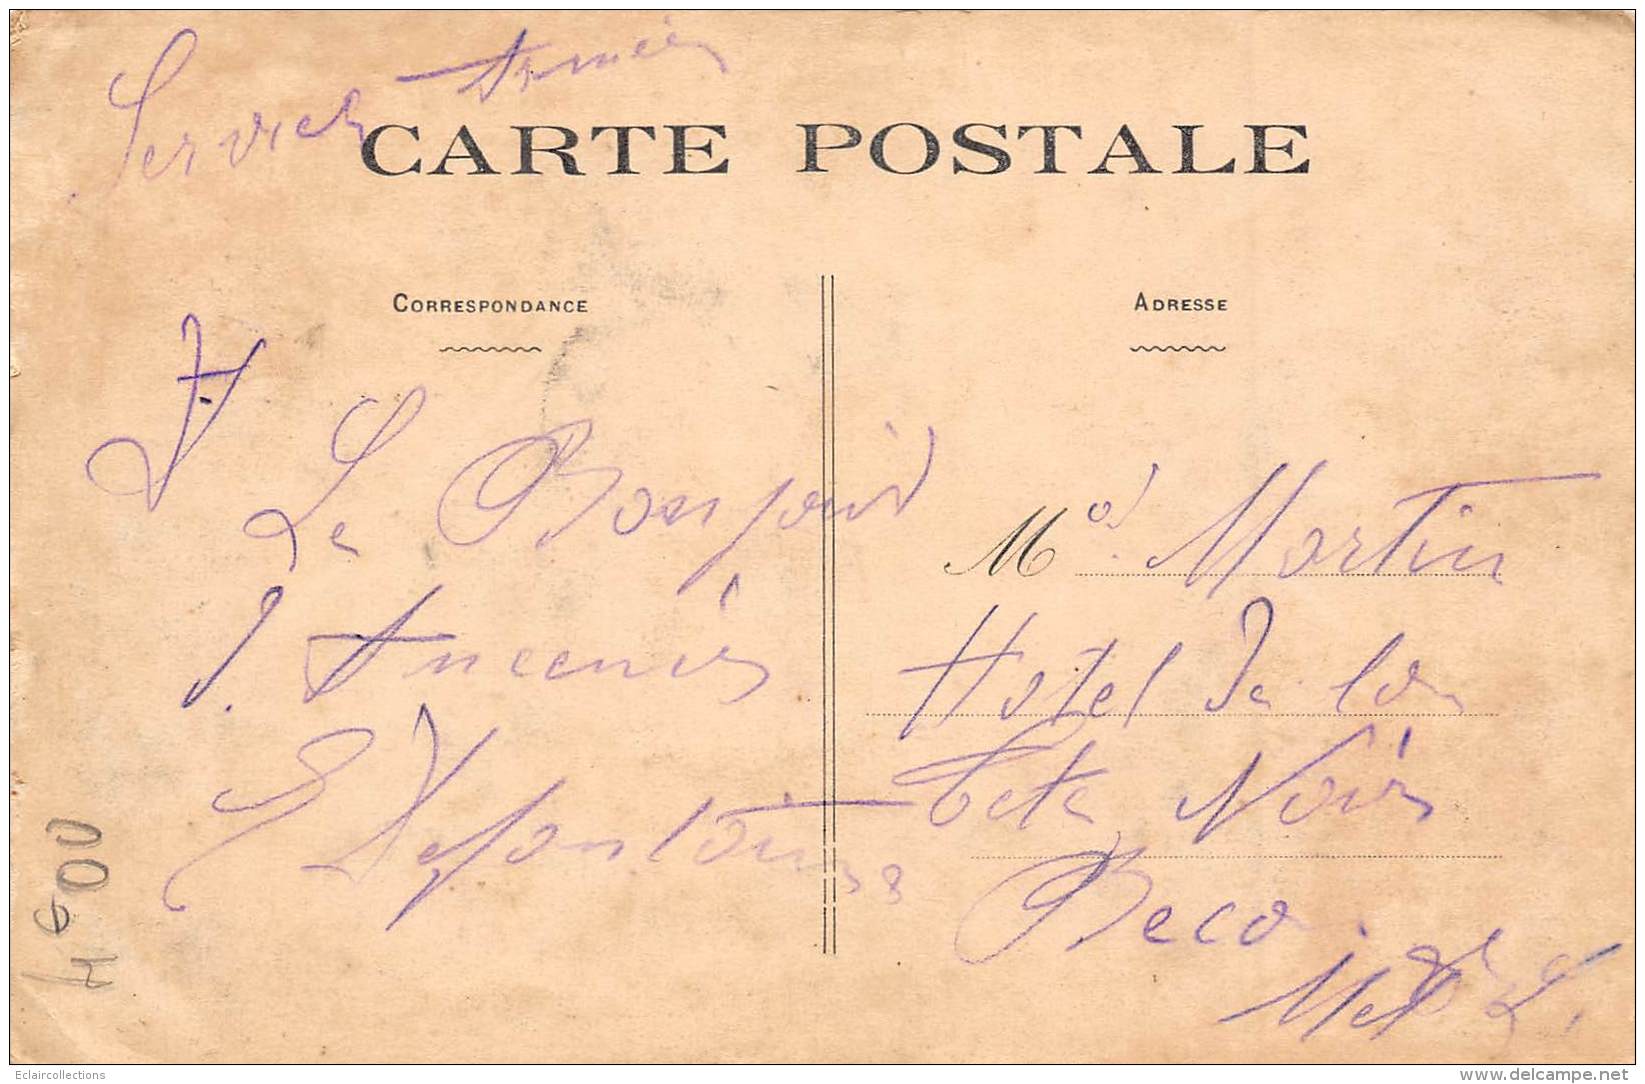 Service Armée
CARTE POSTALE
CORRESPONDANCE
ADRESSE
Le Bonjour
d'Ancenis
Md Martin
Hotel De la
Tete Noir
Beco
Met L
4600
Eclaircollections
delcampe.net